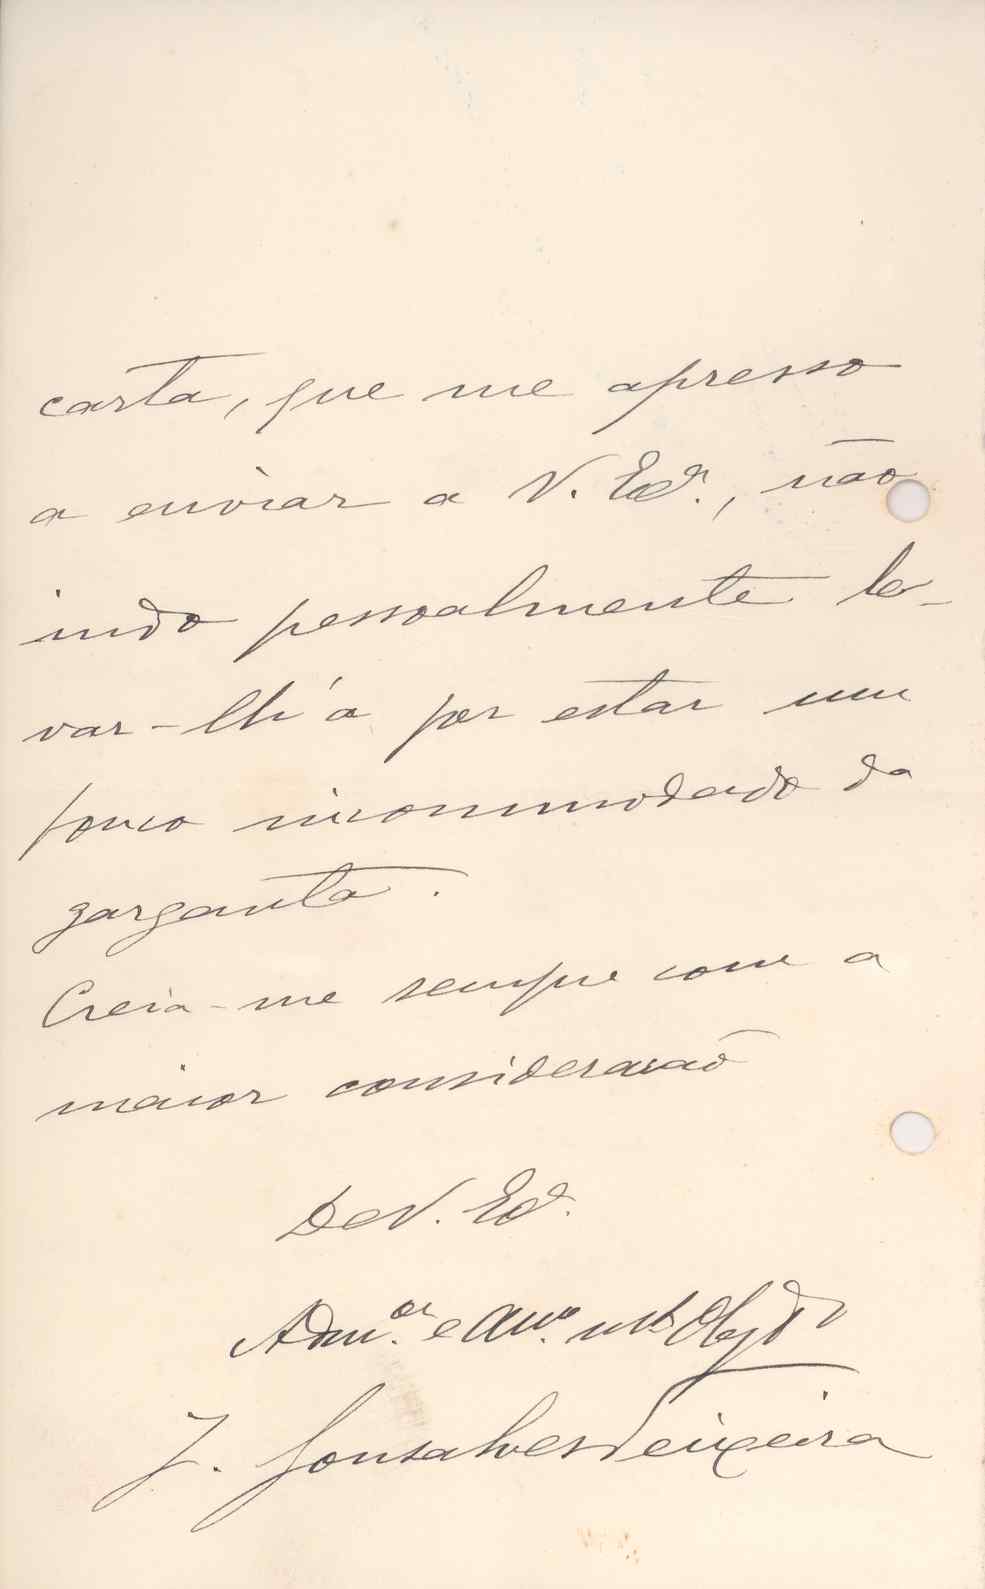 carta, que me apresso
a enviar a V. Exª., não
indo pessoalmente le-
var-lh'a por estar um
pouco incommodado da
garganta.
Creia-me sempre com a
maior consideração
De V. Exª.
Adm.or e Amº. mtº Obgdº
J. Gonsalves Teixeira